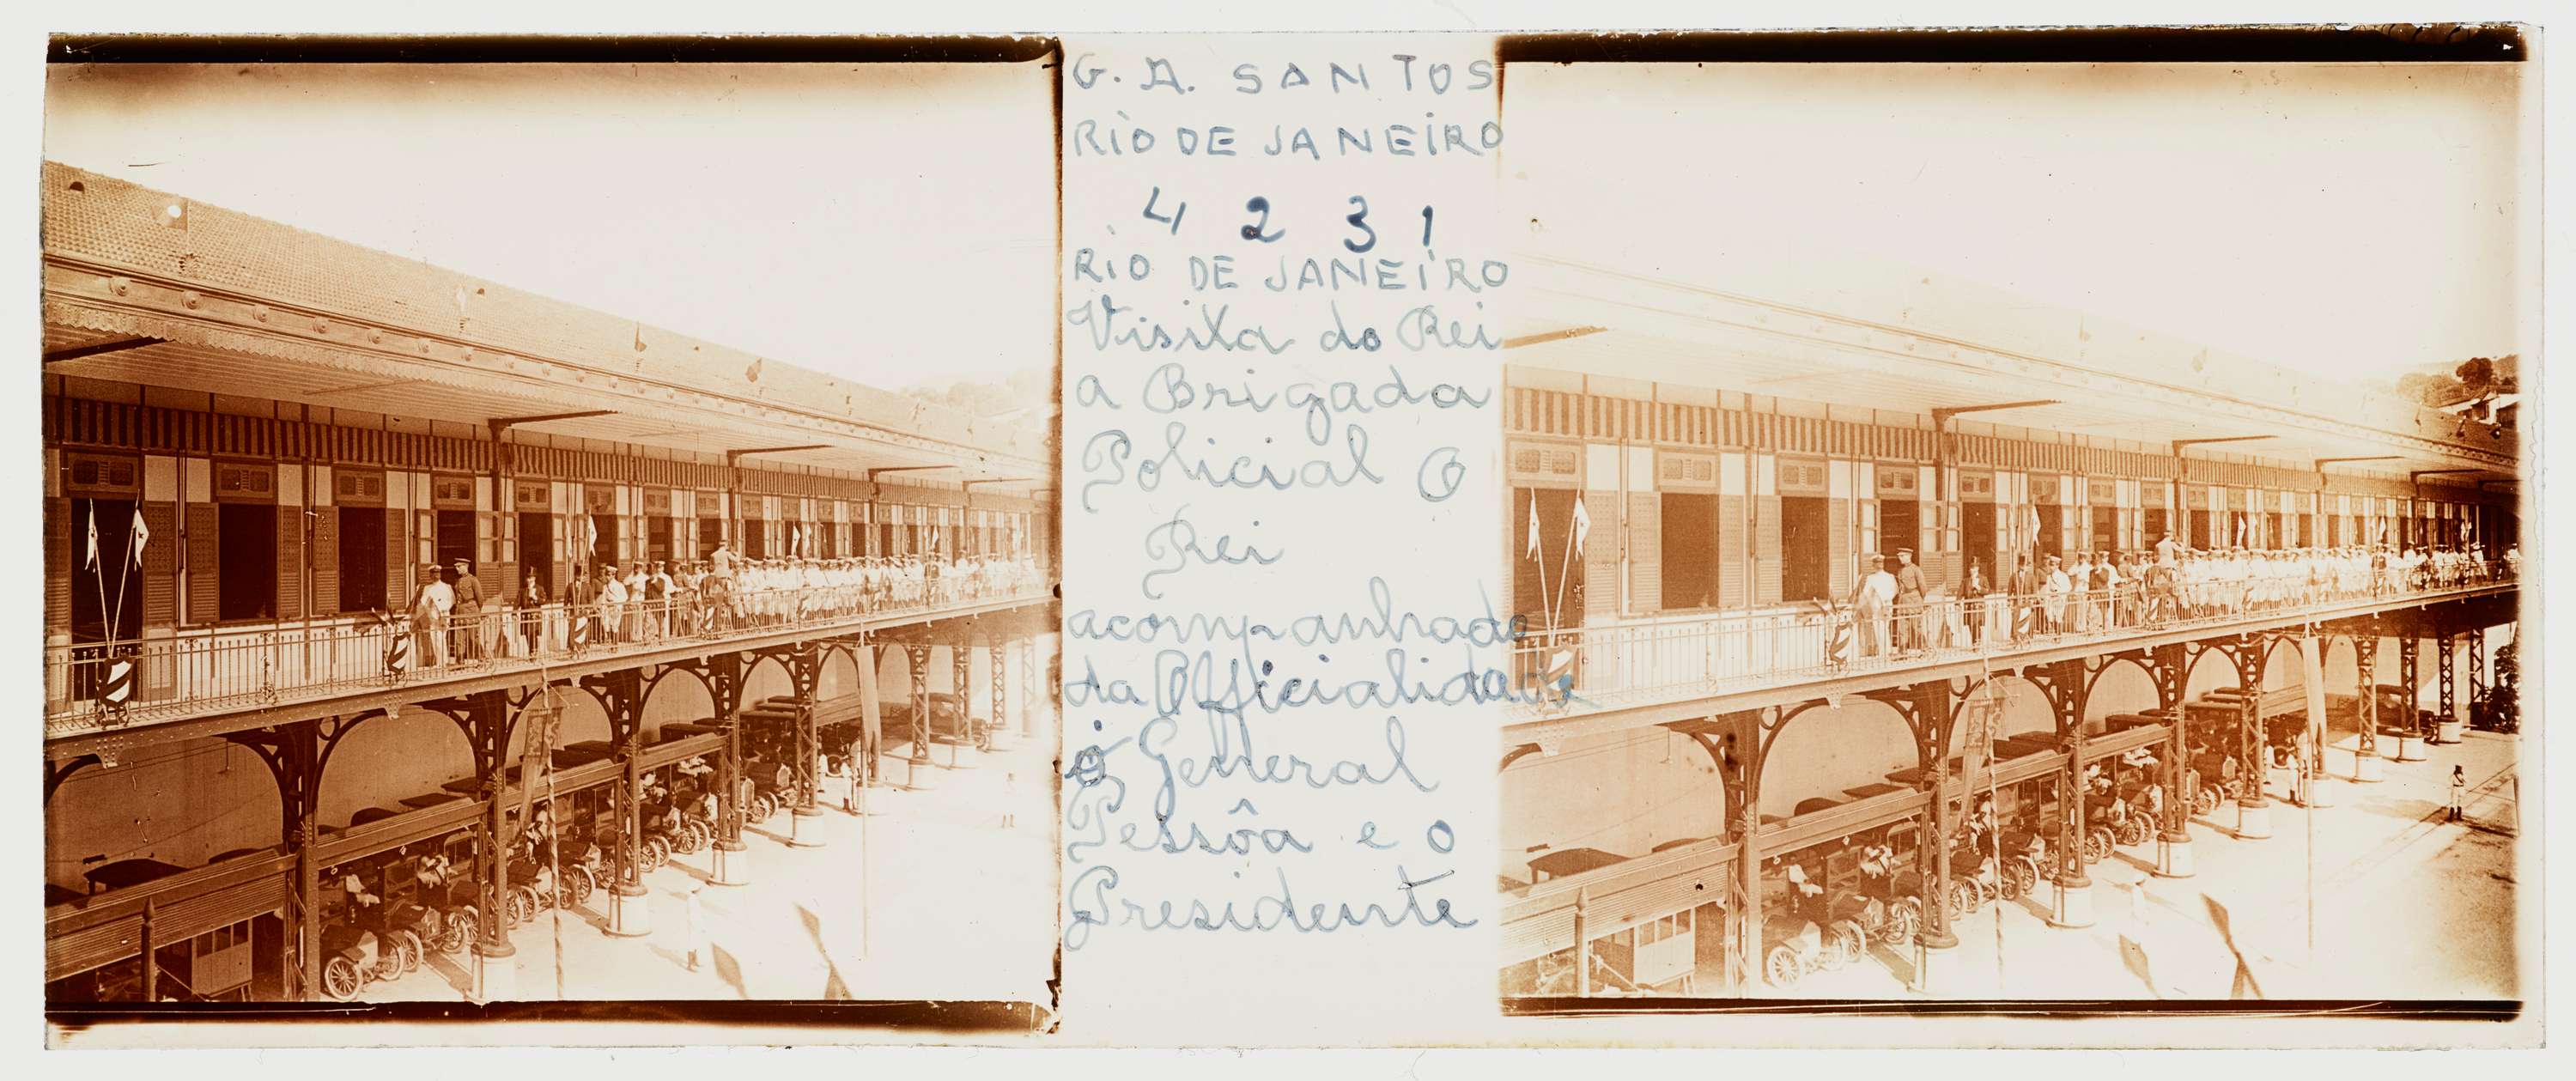 G. A. SANTOS
RIO DE JANEIRO
4 2 3 1
RIO DE JANEIRO
Visita do Rei
a Brigada
Policial O
Rei
acompanhado
da Officialidade
o General
Pessôa e o
Presidente